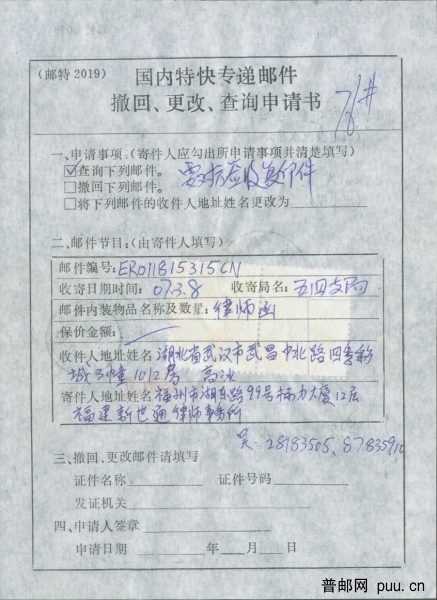 (邮特2019)
国内特快专递邮件
撤回、更改、查询申请书
76#
一、申请事项:(寄件人应勾出所申请事项并清楚填写)
☑查询下列邮件。 要求签收复印件
□撤回下列邮件。
□将下列邮件的收件人地址姓名更改为
二、邮件节目:(由寄件人填写)
邮件编号: ER011815315CN
收寄日期时间: 07.3.8 收寄局名: 五四支局
邮件内装物品名称及数量: 律师函
保价金额:
收件人地址姓名 湖北省武汉市武昌中北路四季彩
城3幢1012房 高冰
寄件人地址姓名 福州市湖东路99号标力大厦12层
福建新世通律师事务所
吴: 28183505、87835910
三、撤回、更改邮件请填写
证件名称 证件号码
发证机关
四、申请人签章
申请日期 年 月 日
普邮网 puu.cn